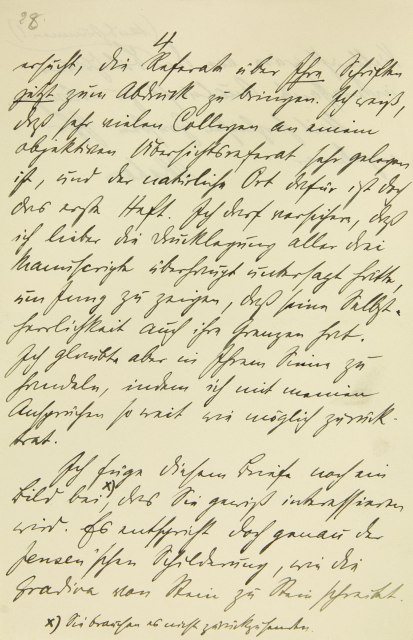 28
4
ersucht, die Referate über Ihre Schriften
jetzt zum Abdruck zu bringen. Ich weiß,
daß sehr vielen Collegen an einem
objektiven Übersichtsreferat sehr gelegen
ist, und der natürliche Ort dafür ist doch
das erste Heft. Ich darf versichern, daß
ich lieber die Drucklegung aller drei
Manuscripte überhaupt untersagt hätte,
um Jung zu zeigen, daß seine Selbst-
herrlichkeit auch ihre Grenzen hat.
Ich glaubte aber in Ihrem Sinne zu
handeln, indem ich mit meinen
Ansprüchen so weit wie möglich zurück-
trat.
Ich füge diesem Briefe noch ein
Bild bei x), das Sie gewiß interessieren
wird. Es entspricht doch genau der
Jensen'schen Schilderung, wie die
Gradiva von Stein zu Stein schreitet.
x) Sie brauchen es nicht zurückzusenden.